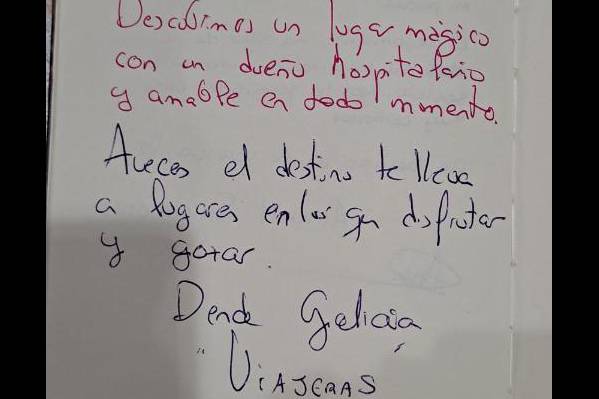 Descubrimos un lugar mágico
con un dueño hospitalario
y amable en todo momento.
Aveces el destino te lleva
a lugares en los que disfrutar
y gozar.
Dende Galicia
"VIAJERAS"